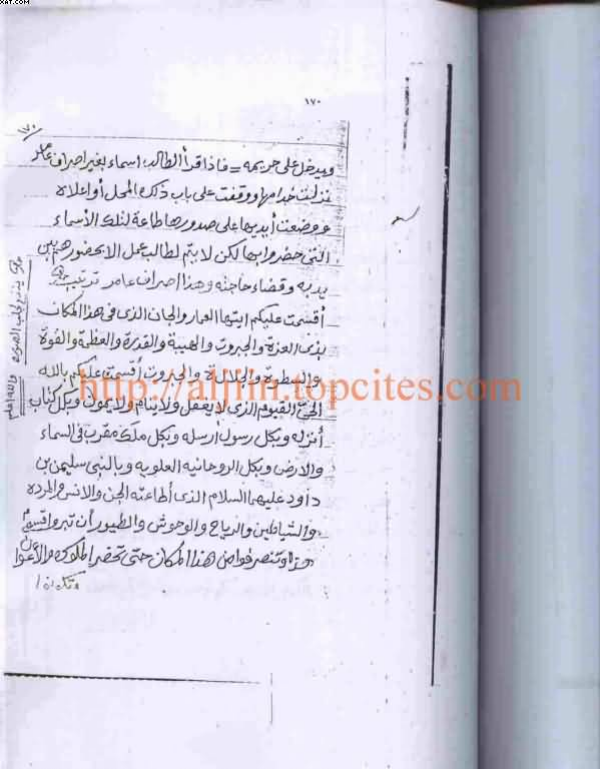 XAT.COM
١٧٠
١٧٠
ويدخل على حريمه = فاذا قرأ الطالب اسماء بغير اصراف عامر
نزلت خدامها ووقفت على باب ذلك المحل أو اعلاه
ووضعت أيديها على صدورها طاعة لتلك الأسماء
التى حضروا بها لكن لا يتم لطالب عمل الا بحضورهم بين
يديه وقضاء حاجته وهذا اصراف عامر ترتيب
أقسمت عليكم ايتها العمار والجان الذى فى هذا المكان
بذى العزة والجبروت والهيبة والقدرة والعظمة والقوة
والسطوة والجلالة والجبروت أقسمت عليكم بالله
الحى القيوم الذى لا يغفل ولا ينام ولا يموت وبكل كتاب
أنزله وبكل رسول أرسله وبكل ملك مقرب فى السماء
والارض وبكل الروحانيه العلويه وبالنبى سليمن بن
داود عليهما السلام الذى أطاعته الجن والانس والمرده
والشياطين والرياح والوحوش والطيور أن تبروا قسمى
هذا وتنصرفوا من هذا المكان حتى تحضر الملوك والأعوان
وتكونوا
والله اعلم
http://aljinn.topcites.com